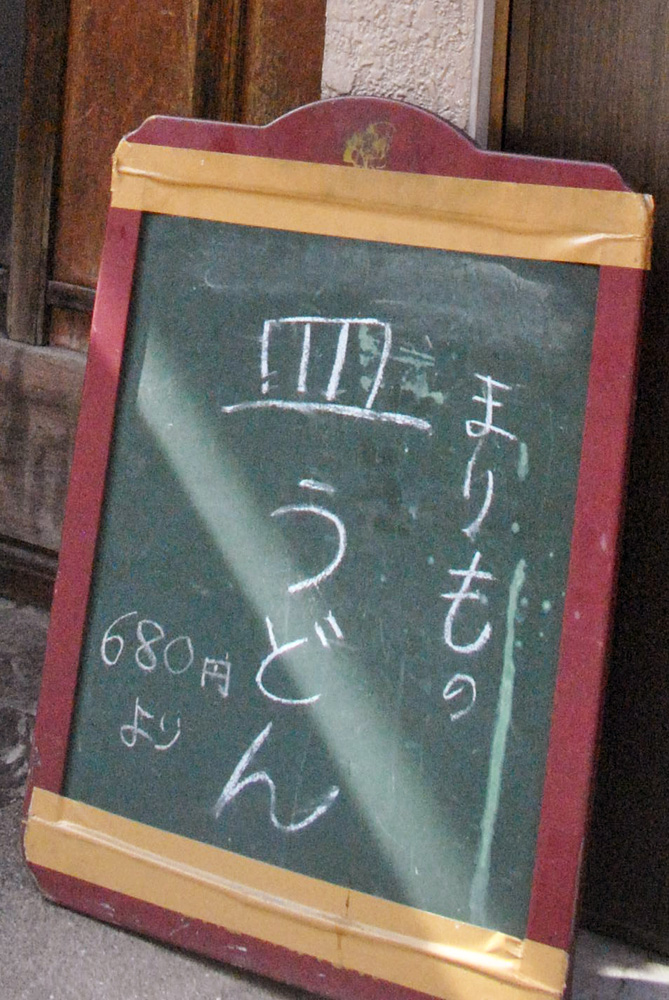 まりもの
皿うどん
680円
より